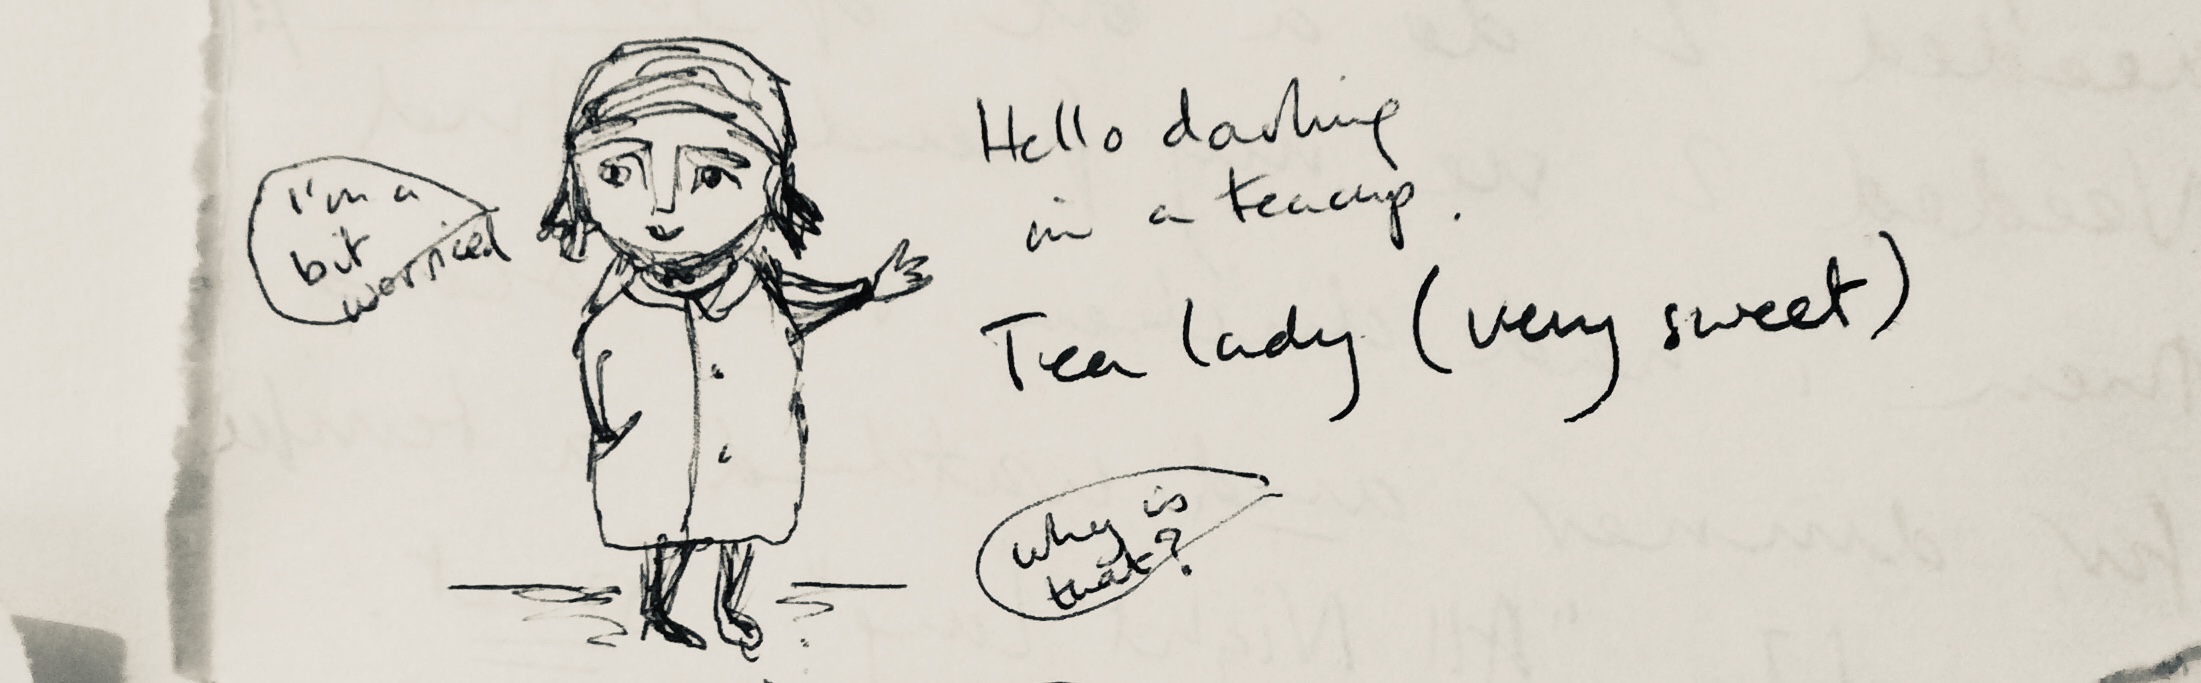 I'm a
bit
worried
Hello darling
in a teacup.
Tea lady (very sweet)
why is
that?